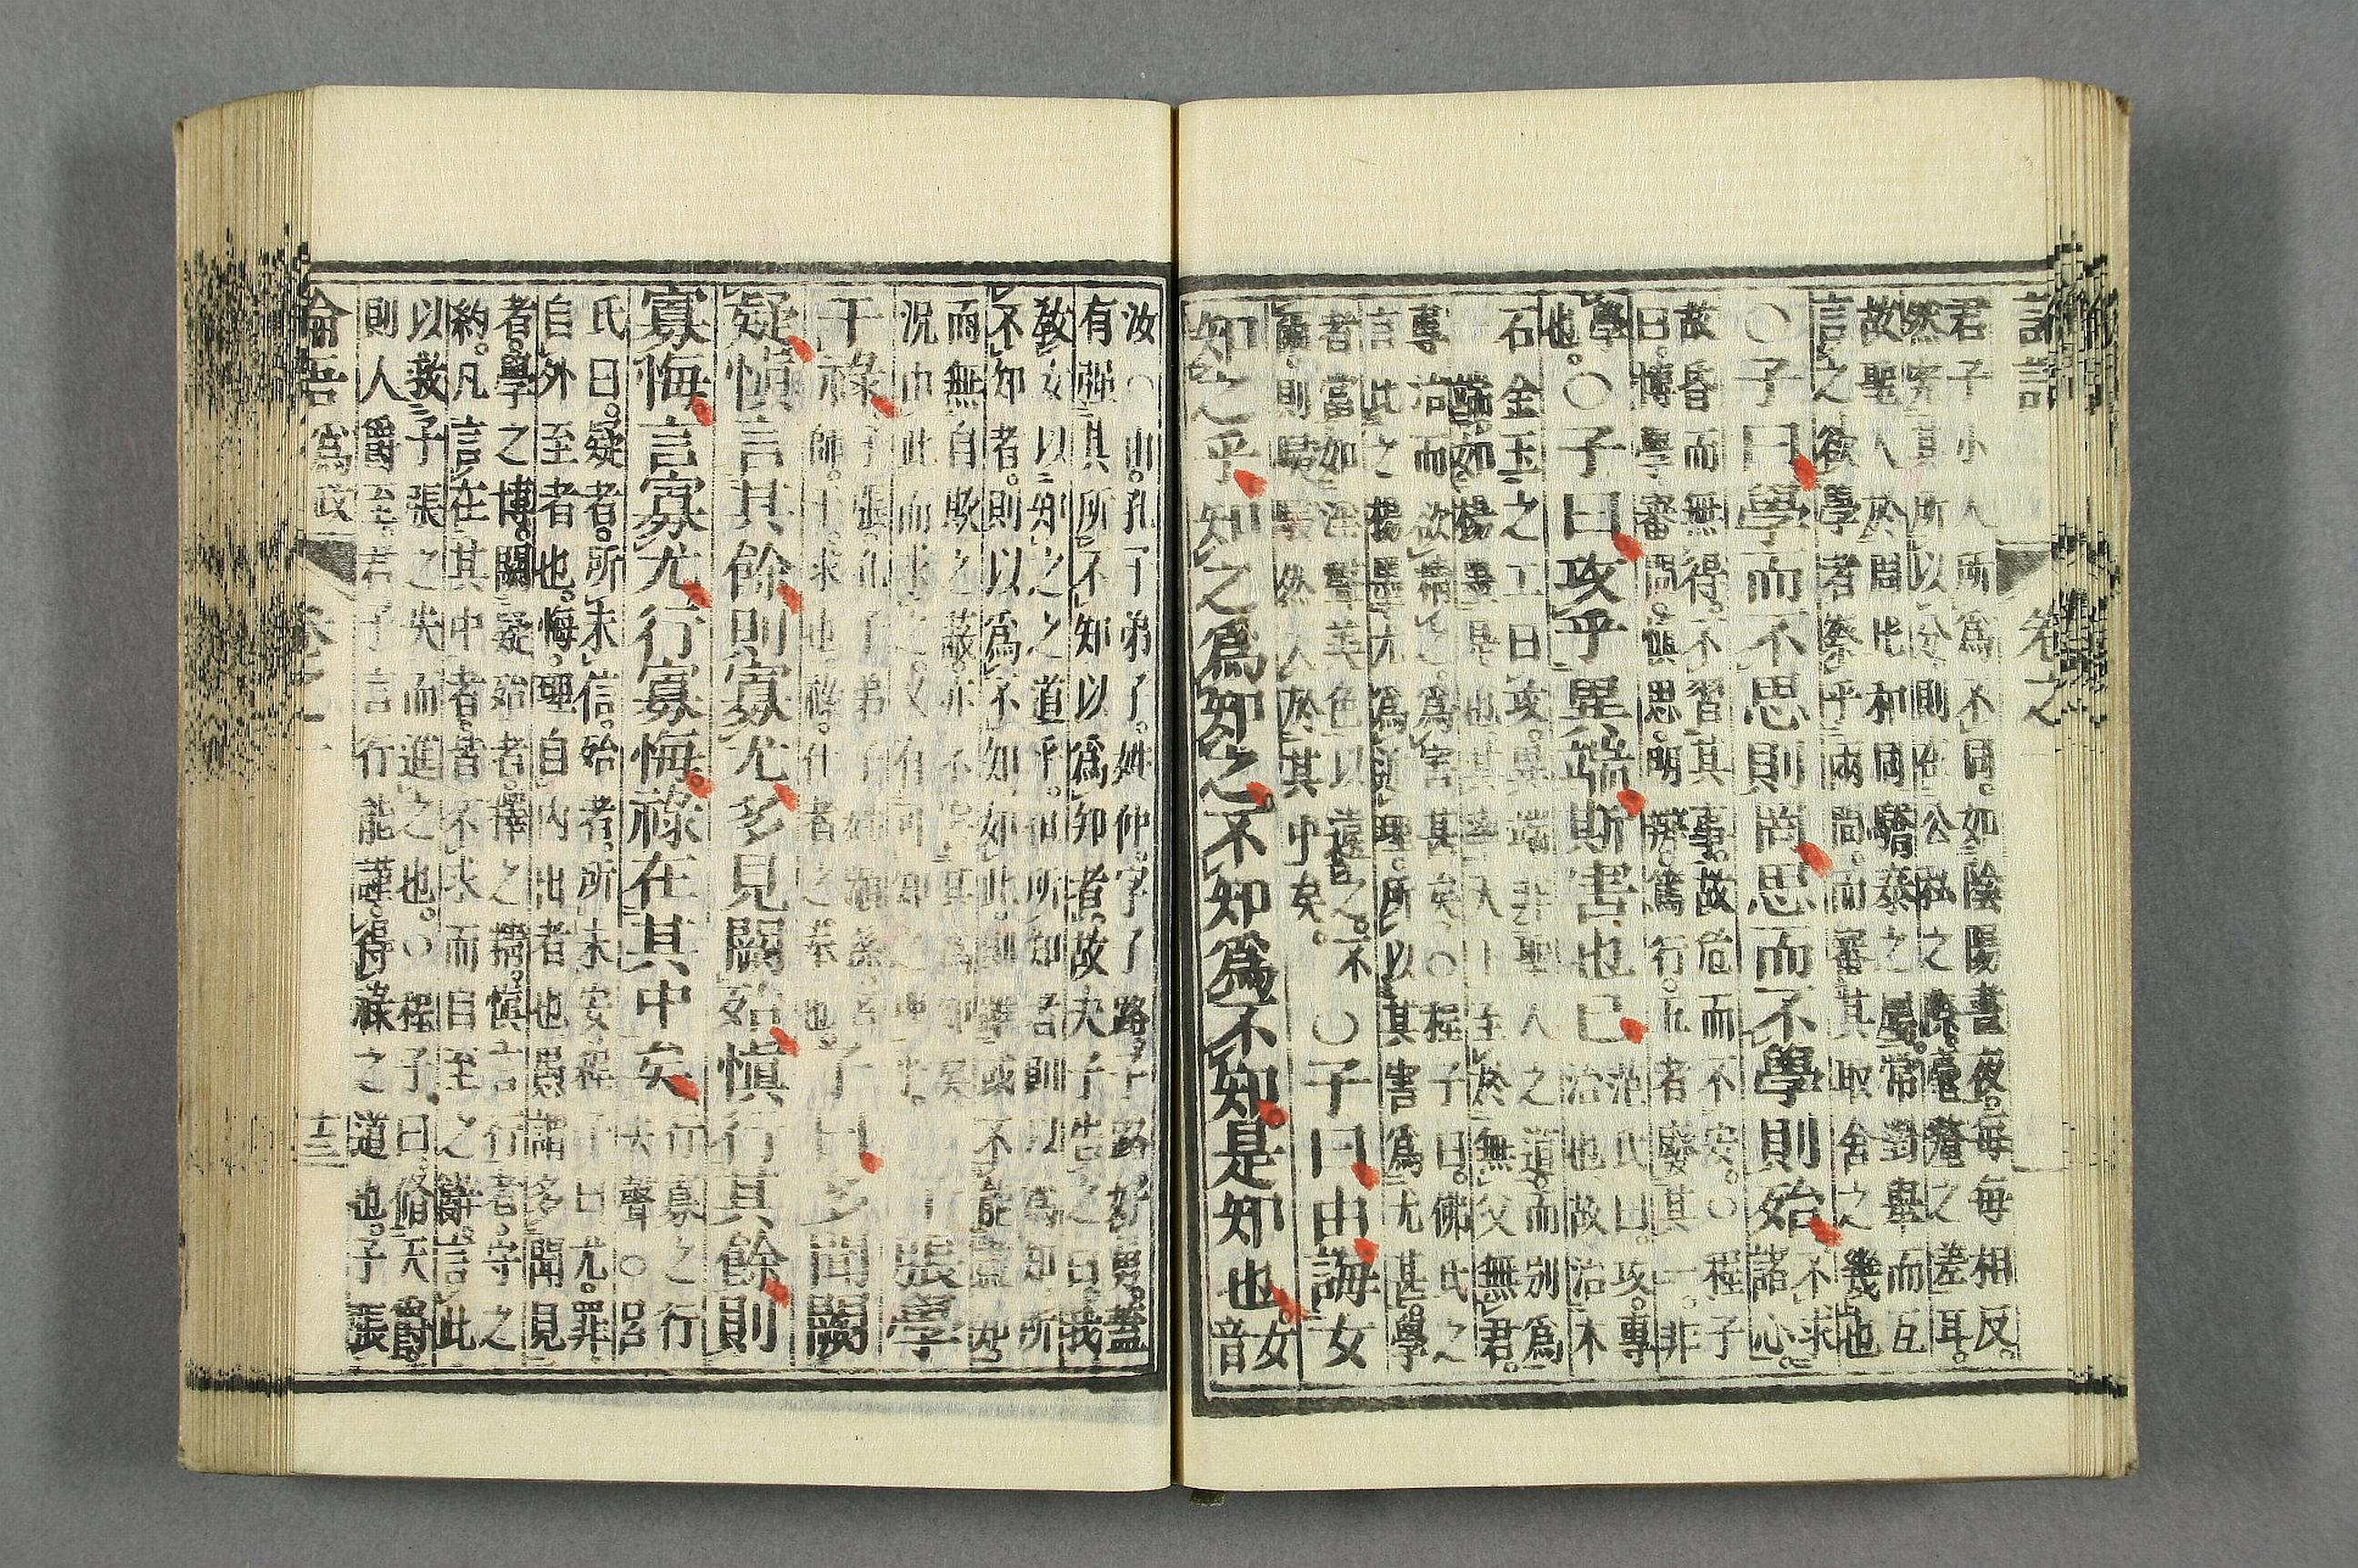 論語　卷之一
君子小人所爲不同。如陰陽晝夜。每每相反。
然究其所以分則在公私之際。毫釐之差耳。
故聖人於周比和同驕泰之屬。常對擧而互
言之欲學者察乎兩間。而審其取舍之幾也
○子曰學而不思則罔思而不學則殆不求諸心。
故昏而無得。不習其事。故危而不安。○程子
曰。博學審問。愼思。明辨。篤行。五者廢其一。非
學也。○子曰攻乎異端斯害也已范氏曰。攻。專治也故治木
石金玉之工曰攻。異端非聖人之道。而別爲
一端。如楊墨是也其率天下至於無父無君。
專治而欲精之。爲害甚矣○程子曰。佛氏之
言比之楊墨尤爲近理。所以其害爲尤甚。學
者當如淫聲美色以遠之。不
爾。則駸駸然入於其中矣。
○子曰由誨女
知之乎知之爲知之不知爲不知是知也女音
汝○由。孔子弟子。姓仲。字子路。子路好勇。蓋
有强其所不知以爲知者。故夫子告之曰。我
敎女以知之之道乎。但所知者則以爲知。所
不知者。則以爲不知如此。則雖或不能盡知。
而無自欺之蔽。亦不害其爲知矣
況由此而求之。又有可知之理乎。
子張學
干祿子張。孔子弟子姓顓孫。名
師。干。求也。祿。仕者之奉也。
子曰多聞闕
疑愼言其餘則寡尤多見闕殆愼行其餘則
寡悔言寡尤行寡悔祿在其中矣行寡之行去聲○呂
氏曰。疑者。所未信。殆者。所未安。程子曰尤。罪
自外至者也。悔。理自內出者也愚謂多聞見
者。學之博。闕疑殆者。擇之精。愼言行者。守之
約。凡言在其中者。皆不求而自至之辭。言此
以救子張之失而進之也。○程子。曰。脩天爵。
則人爵至。君子言行能謹。得祿之道也。子張
論吾　爲政　卷之一　十三